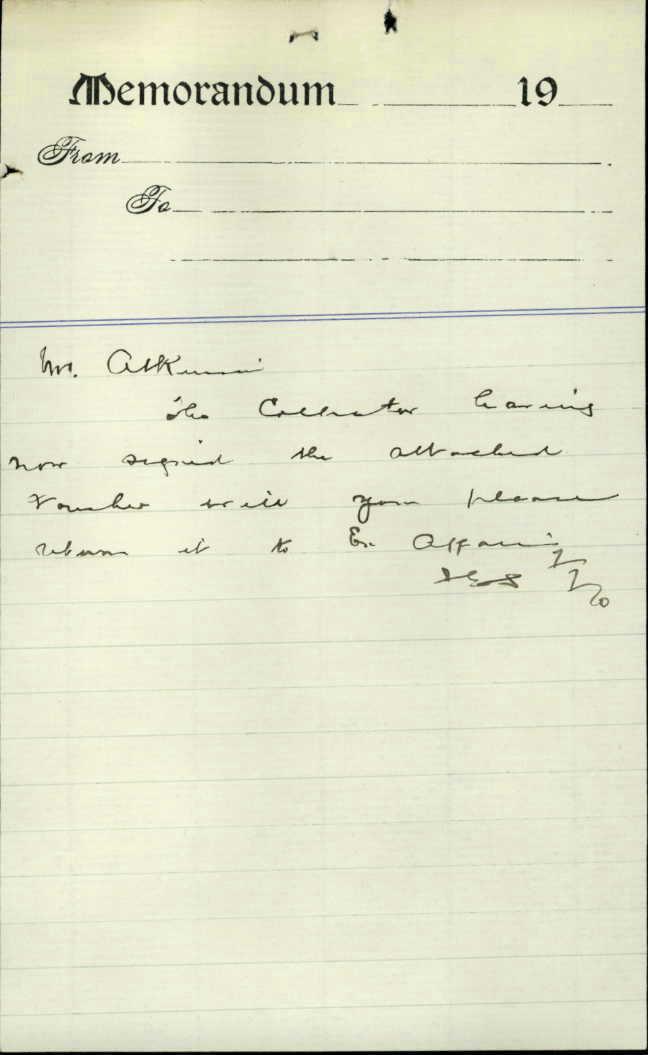 Memorandum 19
From
To
Mr. Atkinson
The Collector having
now signed the attached
Voucher will you please
return it to Ex. Affairs